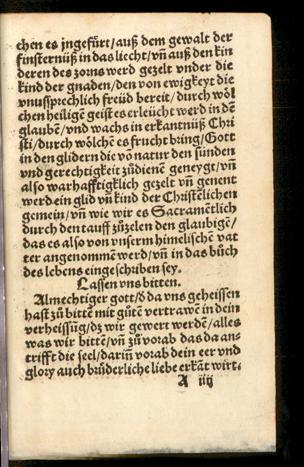 chen es jngefürt/auß dem gewalt der
finsternüß in das liecht/vñ auß den kin
deren des zorns werd gezelt vnder die
kind der gnaden/den von ewigkeyt die
vnussprechlich freüd bereit/durch wöl
chen heilige geist es erleücht werd in dẽ
glaubẽ/vnd wachs in erkantnüß Chri
sti/durch wölchẽ es frucht bring/Gott
in den glidern die võ natur den sünden
vnd gerechtigkeit zůdienẽ geneygt/vñ
also warhafftigklich gezelt vñ genent
werd ein glid vñ kind der Christẽlichen
gemein/vñ wie wir es Sacramẽtlich
durch den tauff zůzelen den glaubigẽ/
das es also von vnserm himelischẽ vat
ter angenommẽ werd/vñ in das bůch
des lebens eingeschriben sey.
Lassen vns bitten.
Almechtiger gott/d da vns geheissen
hast zů bitten mit gůtẽ vertrawẽ in dein
verheissũg/dz wir gewert werdẽ/alles
was wir bittẽ/vñ zů vorab das da an-
trifft die seel/dariñ vorab dein eer vnd
glory auch brůderliche liebe erkãt wirt.
A iiij